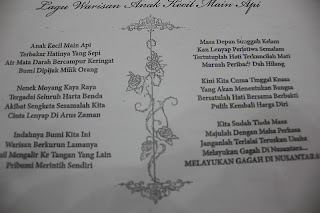 Lagu Warisan Anak Kecil Main Api
Anak Kecil Main Api
Terbakar Hatinya Yang Sepi
Air Mata Darah Bercampur Keringat
Bumi Dipijak Milik Orang
Nenek Moyang Kaya Raya
Tergadai Seluruh Harta Benda
Akibat Sengketa Sesamalah Kita
Cinta Lenyap Di Arus Zaman
Indahnya Bumi Kita Ini
Warisan Berkurun Lamanya
Mengalir Ke Tangan Yang Lain
Pribumi Merintih Sendiri
Masa Depan Sungguh Kelam
Kan Lenyap Peristiwa Semalam
Tertutuplah Hati Terkuncilah Hati
Maruah Peribadi Dah Hilang
Kini Kita Cuma Tinggal Kuasa
Yang Akan Menentukan Bangsa
Bersatulah Hati Bersama Berbakti
Pulih Kembali Harga Diri
Kita Sudah Tiada Masa
Majulah Dengan Maha Perkasa
Janganlah Terlalai Teruskan Usaha
Melayukan Gagah Di Nusantara...
MELAYUKAN GAGAH DI NUSANTARA